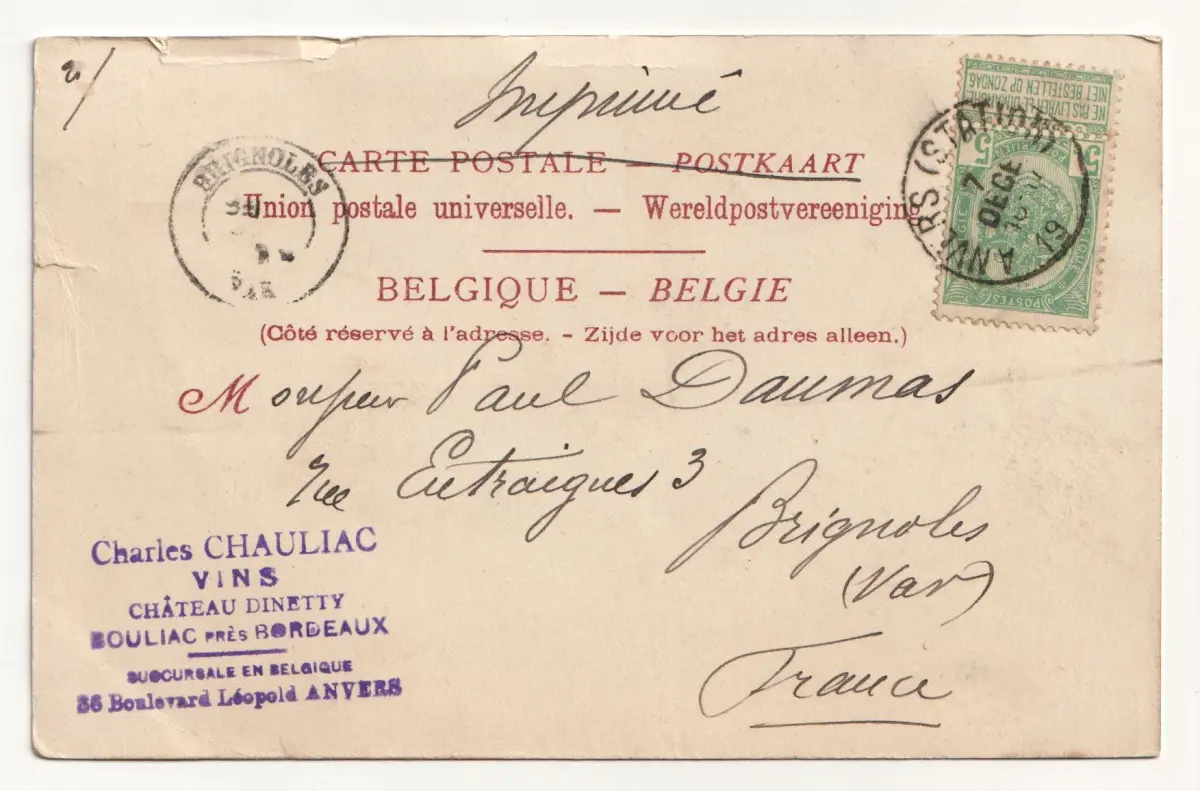 2/
Imprimé
CARTE POSTALE — POSTKAART
Union postale universelle. — Wereldpostvereeniging
BELGIQUE — BELGIE
(Côté réservé à l'adresse. - Zijde voor het adres alleen.)
NE PAS LIVRER LE DIMANCHE
NIET BESTELLEN OP ZONDAG
5 5
POSTES
ANVERS (STATION)
7
DECE
19
BRIGNOLES
VAR
Monsieur Paul Daumas
rue Entraigues 3
Brignoles
(Var)
France
Charles CHAULIAC
VINS
CHÂTEAU DINETTY
BOULIAC PRÈS BORDEAUX
SUCCURSALE EN BELGIQUE
36 Boulevard Léopold ANVERS